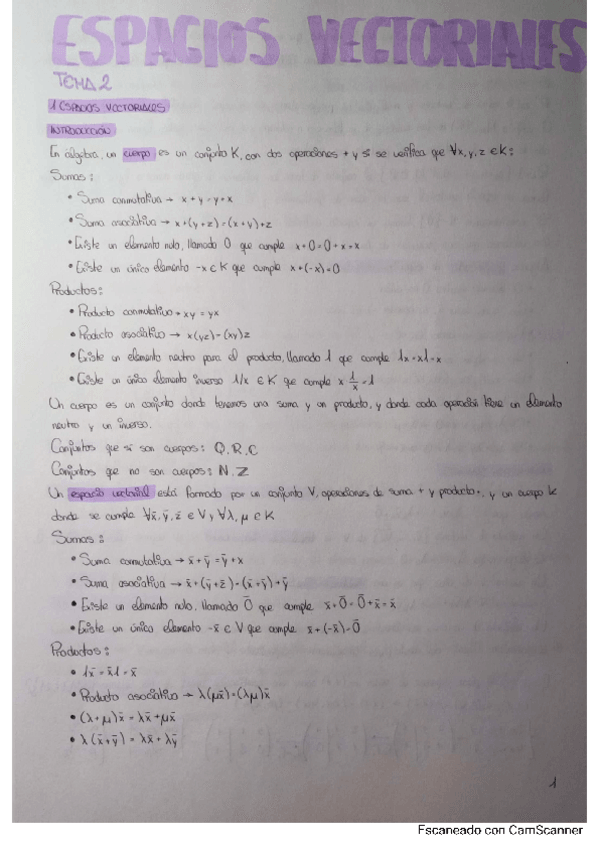 ESPACIOS VECTORIALES
TEMA 2
1 ESPACIOS VECTORIALES
INTRODUCCIÓN
En álgebra, un cuerpo es un conjunto K, con dos operaciones + y · se verifica que ∀x, y, z ∈ K:
Sumas:
• Suma conmutativa → x + y = y + x
• Suma asociativa → x + (y + z) = (x + y) + z
• Existe un elemento nulo, llamado 0 que cumple x + 0 = 0 + x = x
• Existe un único elemento -x ∈ K que cumple x + (-x) = 0
Productos:
• Producto conmutativo → xy = yx
• Producto asociativo → x(yz) = (xy)z
• Existe un elemento neutro para el producto, llamado 1 que comple 1x = x1 = x
• Existe un único elemento inverso 1/x ∈ K que cumple x 1/x = 1
Un cuerpo es un conjunto donde tenemos una suma y un producto, y donde cada operación tiene un elemento
neutro y un inverso.
Conjuntos que si son cuerpos: Q, R, C
Conjuntos que no son cuerpos: N, Z
Un espacio vectorial está formado por un conjunto V, operaciones de suma + y producto ·, y un cuerpo K
donde se cumple ∀x̄, ȳ, z̄ ∈ V y ∀λ, μ ∈ K
Sumas:
• Suma conmutativa → x̄ + ȳ = ȳ + x
• Suma asociativa → x̄ + (ȳ + z̄) = (x̄ + ȳ) + ȳ
• Existe un elemento nulo, llamado 0̄ que cumple x̄ + 0̄ = 0̄ + x̄ = x̄
• Existe un único elemento -x̄ ∈ V que cumple x̄ + (-x̄) = 0̄
Productos:
• 1x̄ = x̄1 = x̄
• Producto asociativo → λ(μx̄) = (λμ)x̄
• (λ + μ)x̄ = λx̄ + μx̄
• λ(x̄ + ȳ) = λx̄ + λȳ
1
Escaneado con CamScanner